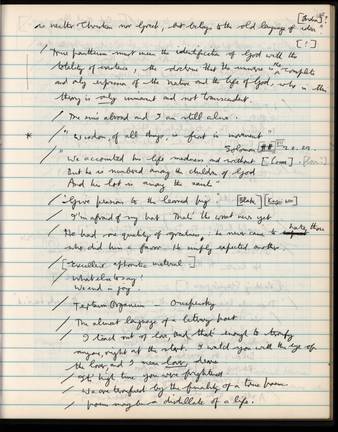 is neither Christian nor Greek, but belongs to the old language of
[!]
/ True pantheism must mean the identification of God with the
totality of existence, the doctrine that the universe is the complete
and only expression of the nature and the life of God, who on this
theory is only immanent and not transcendent.
/ The is abroad and I am still alive.
* / "Wisdom, of all things, is first in movement"
Solomon
/ "We accounted his life madness and without
But he is numbered among the children of God
And his lot is among the saints"
/ Give pearson to the learned pig [Blake]
/ I'm afraid of my hat. That's the worst ever yet
/ He had one quality of gratitude, he never came to hate those
who did him a favor. He simply expected another.
[Excellent aphoristic material]
/ What else to say?
We end in joy.
/ Tertium Organum - Ouspensky
/ The almost language of a literary poet
/ I teach out of love, and that's enough to terrify
anyone, right at the start. I hold you with the eye of
the love, and I mean love, dearie
/ It's high time you were frightened
/ We are terrified by the finality of a true poem.
/ A poem may be a distillate of a life.